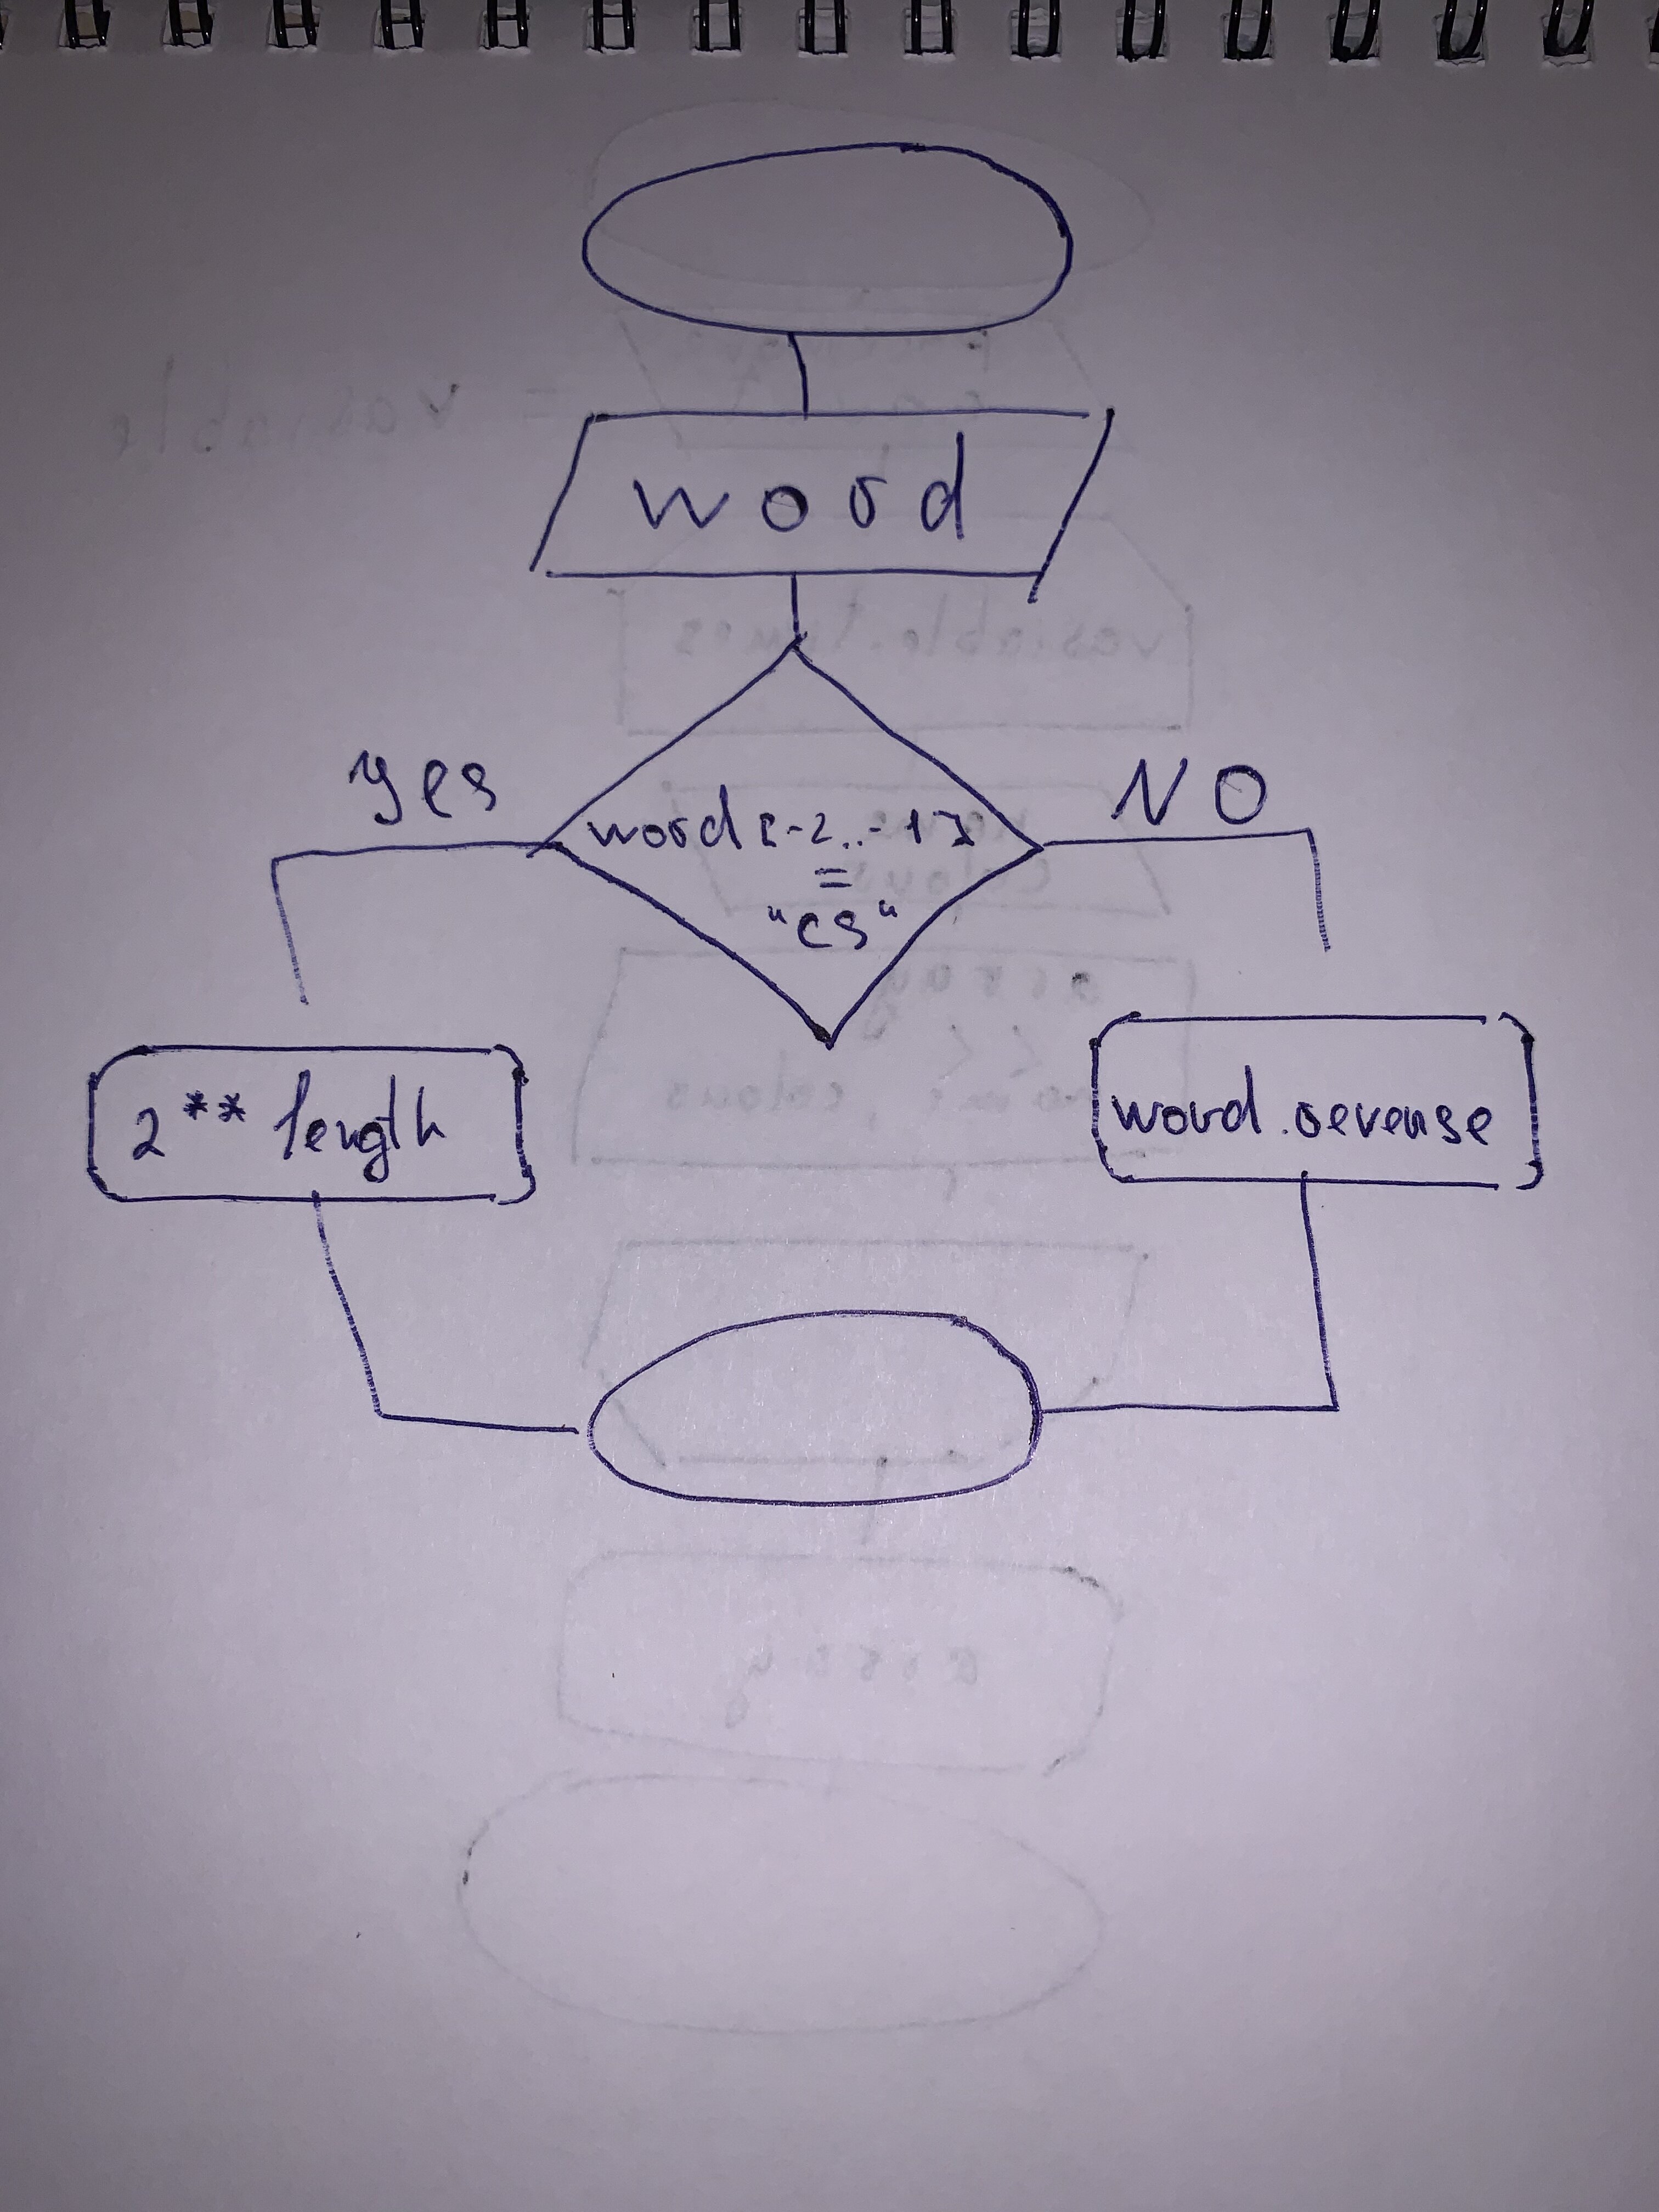 word
Yes
NO
word[-2..-1]
=
"cs"
2 ** length
word.reverse